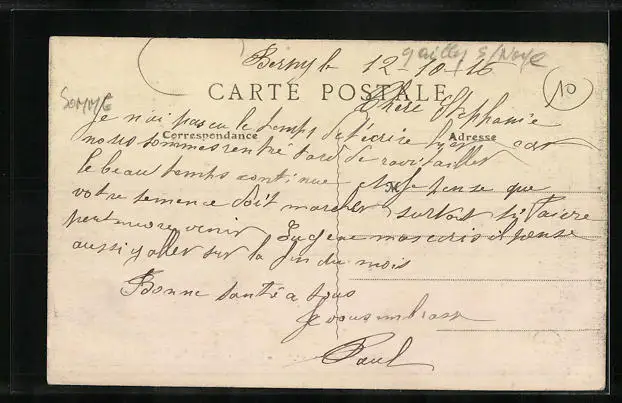 Berny le 12-10-16
SOMME
10
CARTE POSTALE
Chère Stéphanie
Je n'ai pas eu le temps de t'ecrire hyer car
Correspondance
Adresse
nous sommes rentré tard de ravitailler
le beau temps continue Je pense que
M
votre semence doit marcher surtout si
peut encore venir Eugène pense
aussi y aller sur la fin du mois
Bonne santé a tous
Je vous embrasse
Paul